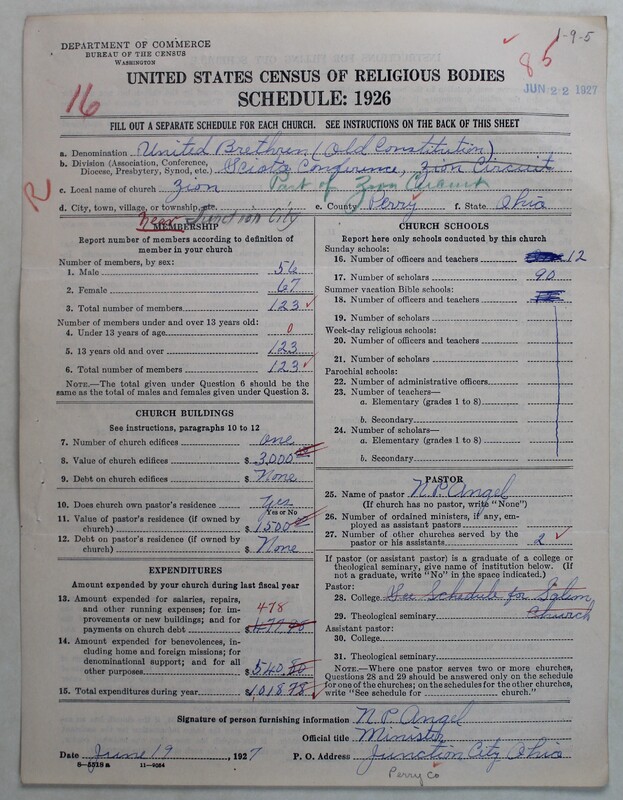 1-9-5
DEPARTMENT OF COMMERCE
BUREAU OF THE CENSUS
WASHINGTON
85
JUN 22 1927
16
UNITED STATES CENSUS OF RELIGIOUS BODIES
SCHEDULE: 1926
FILL OUT A SEPARATE SCHEDULE FOR EACH CHURCH. SEE INSTRUCTIONS ON THE BACK OF THIS SHEET
a. Denomination United Brethren (Old Constitution)
b. Division (Association, Conference, Diocese, Presbytery, Synod, etc.) Sciota Conference, Zion Circuit
R
c. Local name of church Zion Part of Zion Circuit
d. City, town, village, or township, etc. near Junction City e. County Perry f. State Ohio
MEMBERSHIP
Report number of members according to definition of
member in your church
Number of members, by sex:
1. Male 56
2. Female 67
3. Total number of members 123
Number of members under and over 13 years old:
4. Under 13 years of age 0
5. 13 years old and over 123
6. Total number of members 123
NOTE.—The total given under Question 6 should be the
same as the total of males and females given under Question 3.
CHURCH BUILDINGS
See instructions, paragraphs 10 to 12
7. Number of church edifices one
8. Value of church edifices $ 3,000
9. Debt on church edifices $ None
10. Does church own pastor's residence? Yes
Yes or No
11. Value of pastor's residence (if owned by
church) $ 1500
12. Debt on pastor's residence (if owned by
church) $ None
EXPENDITURES
Amount expended by your church during last fiscal year
13. Amount expended for salaries, repairs,
and other running expenses; for im-
provements or new buildings; and for
payments on church debt $ 478
14. Amount expended for benevolences, in-
cluding home and foreign missions; for
denominational support; and for all
other purposes $ 540.80
15. Total expenditures during year $ 1,018.78
CHURCH SCHOOLS
Report here only schools conducted by this church
Sunday schools:
16. Number of officers and teachers 12
17. Number of scholars 90
Summer vacation Bible schools:
18. Number of officers and teachers
19. Number of scholars
Week-day religious schools:
20. Number of officers and teachers
21. Number of scholars
Parochial schools:
22. Number of administrative officers
23. Number of teachers—
a. Elementary (grades 1 to 8)
b. Secondary
24. Number of scholars—
a. Elementary (grades 1 to 8)
b. Secondary
PASTOR
25. Name of pastor N. P. Angel
(If church has no pastor, write "None")
26. Number of ordained ministers, if any, em-
ployed as assistant pastors
27. Number of other churches served by the
pastor or his assistants 2
If pastor (or assistant pastor) is a graduate of a college or
theological seminary, give name of institution below. (If
not a graduate, write "No" in the space indicated.)
Pastor:
28. College See Schedule for Salem
29. Theological seminary Church
Assistant pastor:
30. College
31. Theological seminary
NOTE.—Where one pastor serves two or more churches,
Questions 28 and 29 should be answered only on the schedule
for one of the churches; on the schedules for the other churches,
write "See schedule for church."
Signature of person furnishing information N. P. Angel
Official title Minister
Date June 19, 1927 P. O. Address Junction City Ohio
8-5518 a 11-9054
Perry Co